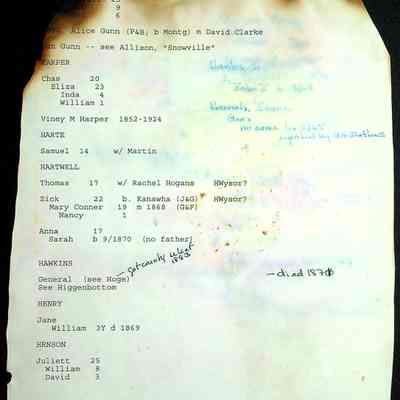 9
6
Alice Gunn (P&B; b Montg) m David Clarke
Gunn -- see Allison, "Snowville"
HARPER
Chas 20
Eliza 23
Inda 4
William 1
Viney M Harper 1852-1924
HARTE
Samuel 14 w/ Martin
HARTWELL
Thomas 17 w/ Rachel Hogans HWysor?
Zick 22 b. Kanawha (J&G) HWysor?
Mary Conner 19 m 1868 (G&F)
Nancy 1
Anna 17
Sarah b 9/1870 (no father)
HAWKINS
General (see Hoge) - got county
See Higgenbottom
- died 1870
HENRY
Jane
William 3Y d 1869
HENSON
Juliett 25
William 8
David 3